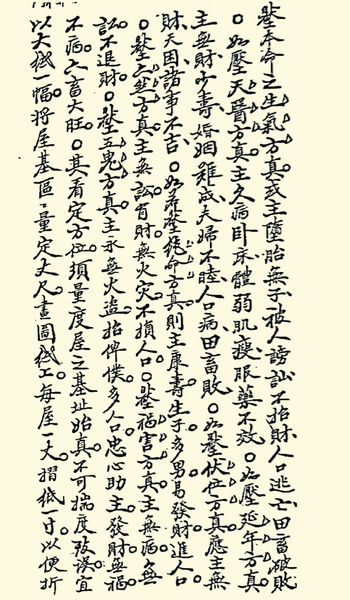 壓本命之生氣方真或主墮胎無子被人謗訟不招財人口逃亡田畜破敗
○如壓天醫方真主久病卧床體弱肌瘦服藥不效○如壓延年方真
主無財少壽婚姻難成夫婦不睦人口病田畜敗○如壓伏位方真應主無
財夭困諸事不吉○如若壓絕命方真則主康壽生子多男易發財進人口
○壓六煞方真主無訟有財無火灾不損人口○壓禍害方真主無病無
訟不退財○壓五鬼方真主永無火盜招俾僕多人口忠心助主發財無禍
不病六畜大旺○其看定方位須量度屋之基址始真不可揣度致誤宜
以大紙一幅將屋基區〻量定丈尺畫圖紙上每屋一丈摺紙一寸以便折